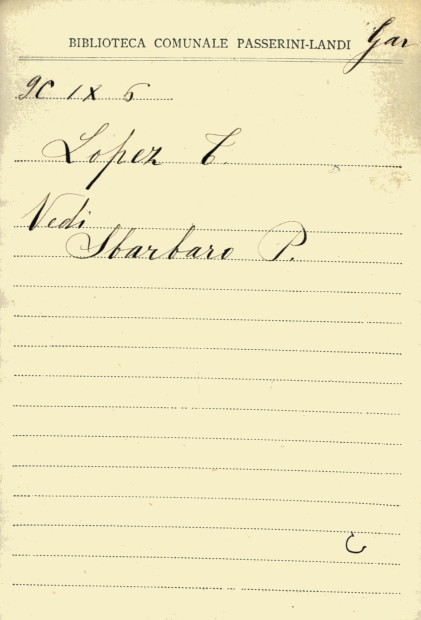 BIBLIOTECA COMUNALE PASSERINI-LANDI Gar
9C IX 6
Lopez C.
Vedi
Sbarbaro P.